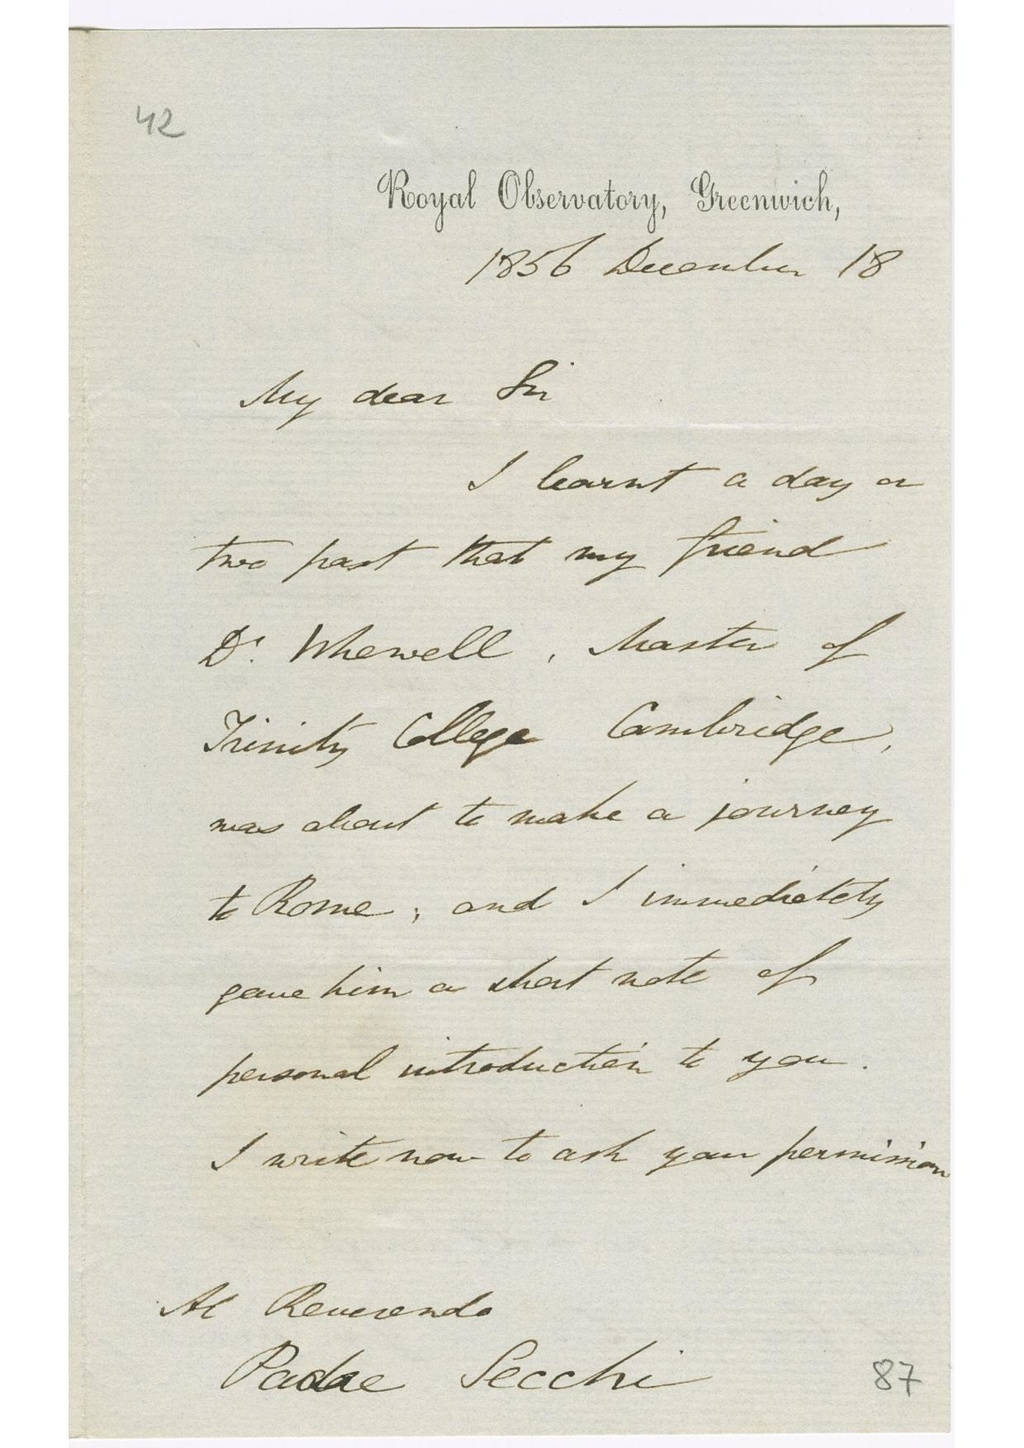 42
Royal Observatory, Greenwich,
1856 December 18
My dear Sir
I learnt a day or
two past that my friend
Dr. Whewell, Master of
Trinity College Cambridge,
was about to make a journey
to Rome; and I immediately
gave him a short note of
personal introduction to you.
I write now to ask your permission
Al Reverendo
Padre Secchi
87